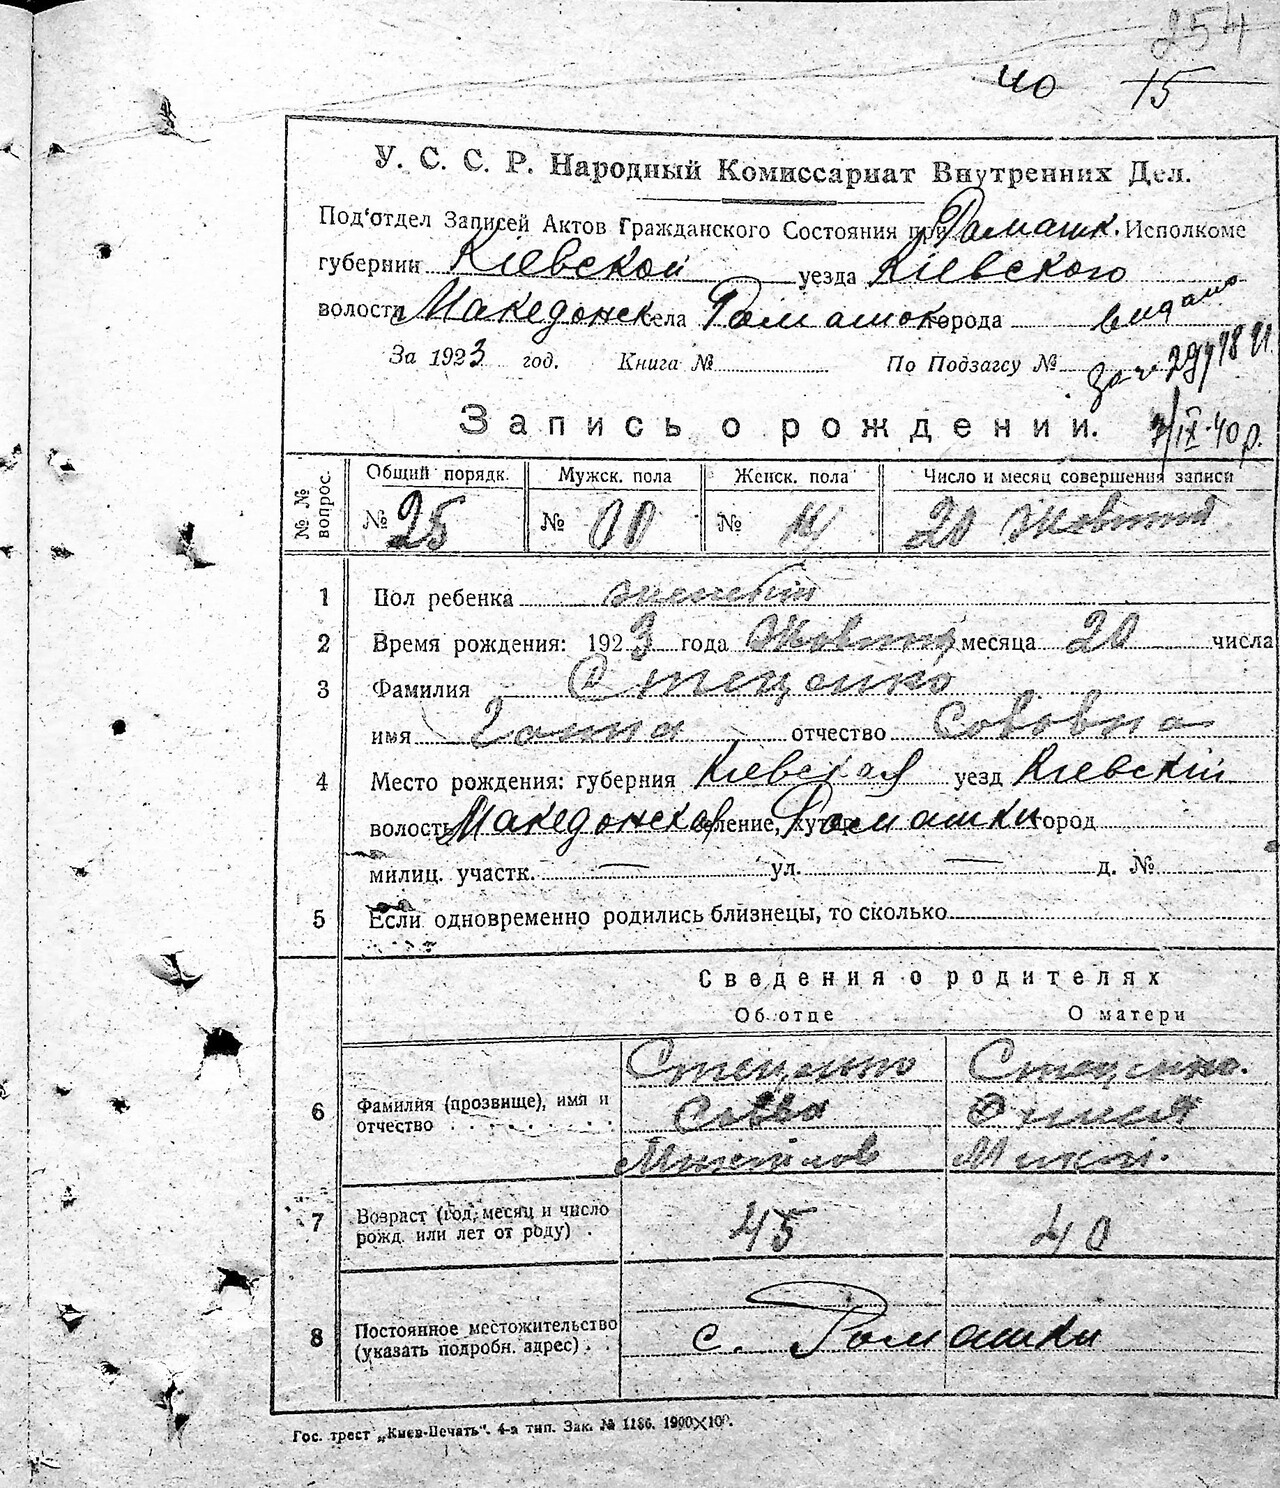 254
40 15
У. С. С. Р. Народный Комиссариат Внутренних Дел.
Под'отдел Записей Актов Гражданского Состояния при Ромашк. Исполкоме
губернии Кіевской уезда Кіевского
волости Македонск села Ромашок города видано
За 1923 год. Книга № По Подзагсу №
Запись о рождении. IX-40р.
№№ вопрос. Общий порядк. Мужск. пола Женск. пола Число и месяц совершения записи
№ 25 № 00 № 14 20 Жовтня
1 Пол ребенка
2 Время рождения: 1923 года Жовтня месяца 20 числа
3 Фамилия Стеценко
имя Ганна отчество Сововна
4 Место рождения: губерния Кіевская уезд Кіевскій
волость Македонская селение, хутор Ромашки город
милиц. участк. — ул. — д. №
5 Если одновременно родились близнецы, то сколько
Сведения о родителях
Об отце О матери
Стеценко Стеценко.
6 Фамилия (прозвище), имя и отчество Совва
Микит.
7 Возраст (год, месяц и число рожд. или лет от роду) 45 40
8 Постоянное местожительство (указать подробн. адрес) с. Ромашки
Гос. трест „Киев-Печать". 4-я тип. Зак. № 1186. 1900×100.